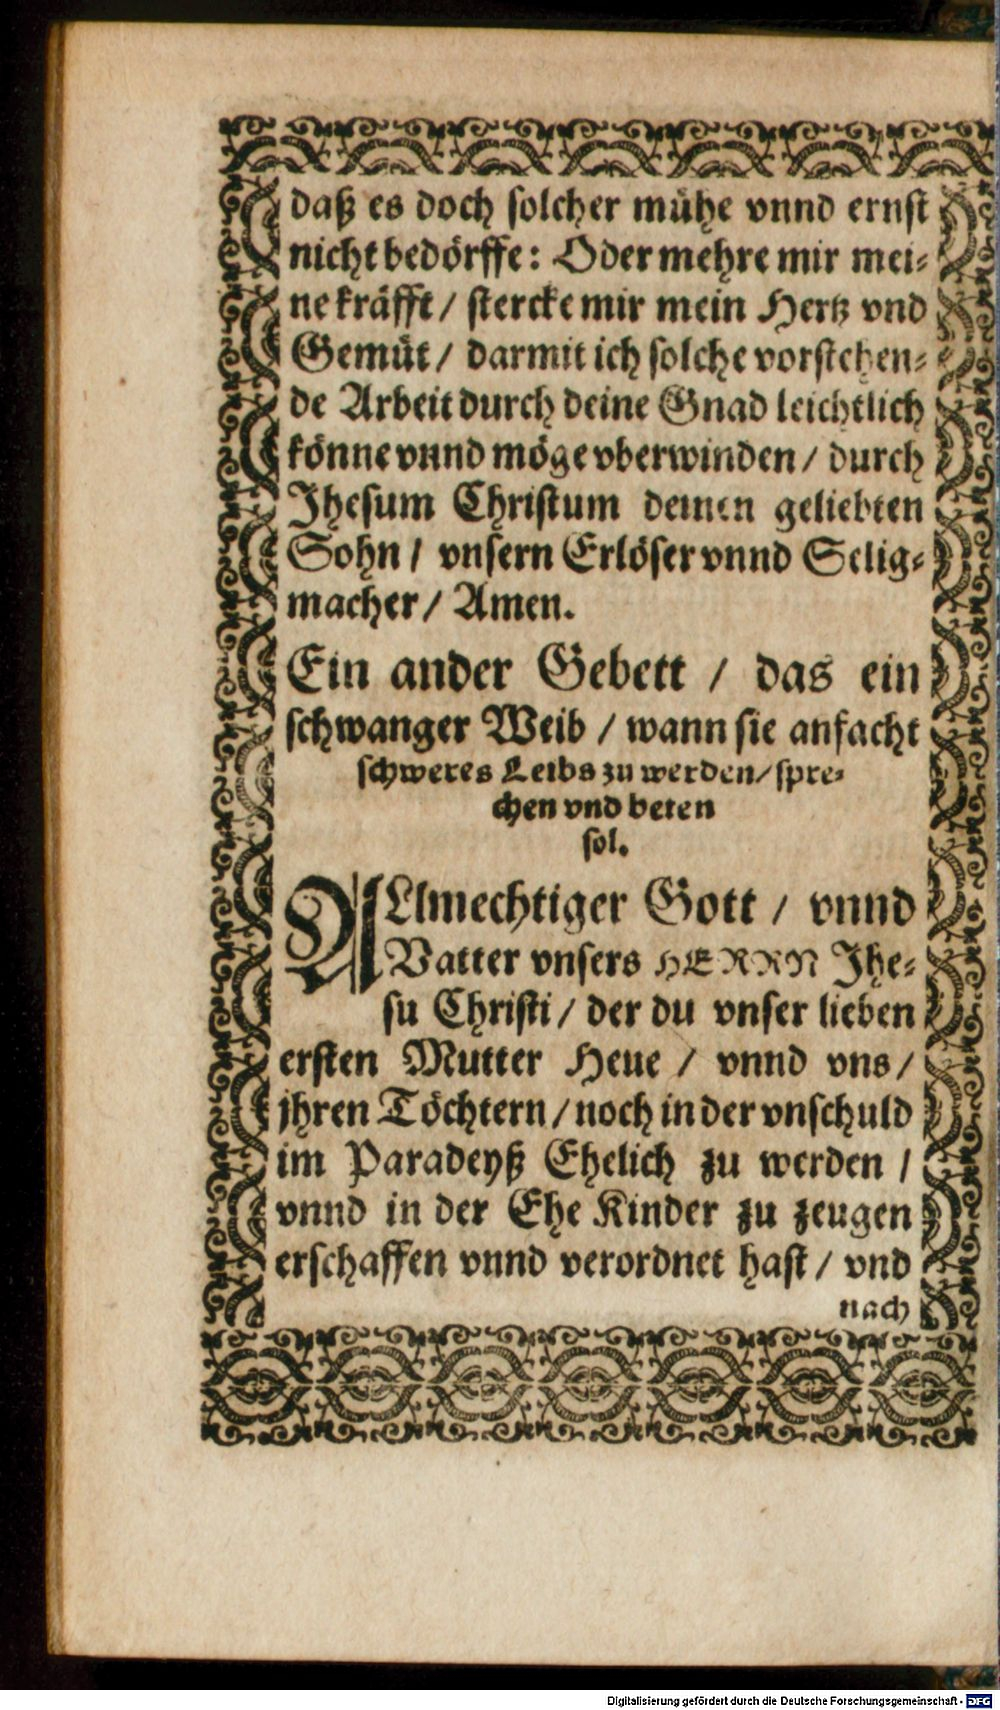 daß es doch solcher mühe vnnd ernst
nicht bedörffe: Oder mehre mir mei⸗
ne kräfft / stercke mir mein Hertz vnd
Gemüt / darmit ich solche vorstehen⸗
de Arbeit durch deine Gnad leichtlich
könne vnnd möge vberwinden / durch
Jhesum Christum deinen geliebten
Sohn / vnsern Erlöser vnnd Selig⸗
macher / Amen.
Ein ander Gebett / das ein
schwanger Weib / wann sie anfacht
schweres Leibs zu werden / spre⸗
chen vnd beten
sol.
ALlmechtiger Gott / vnnd
Vatter vnsers HERRN Jhe⸗
su Christi / der du vnser lieben
ersten Mutter Heue / vnnd vns /
jhren Töchtern / noch in der vnschuld
im Paradeyß Ehelich zu werden /
vnnd in der Ehe Kinder zu zeugen
erschaffen vnnd verordnet hast / vnd
nach
Digitalisierung gefördert durch die Deutsche Forschungsgemeinschaft - DFG